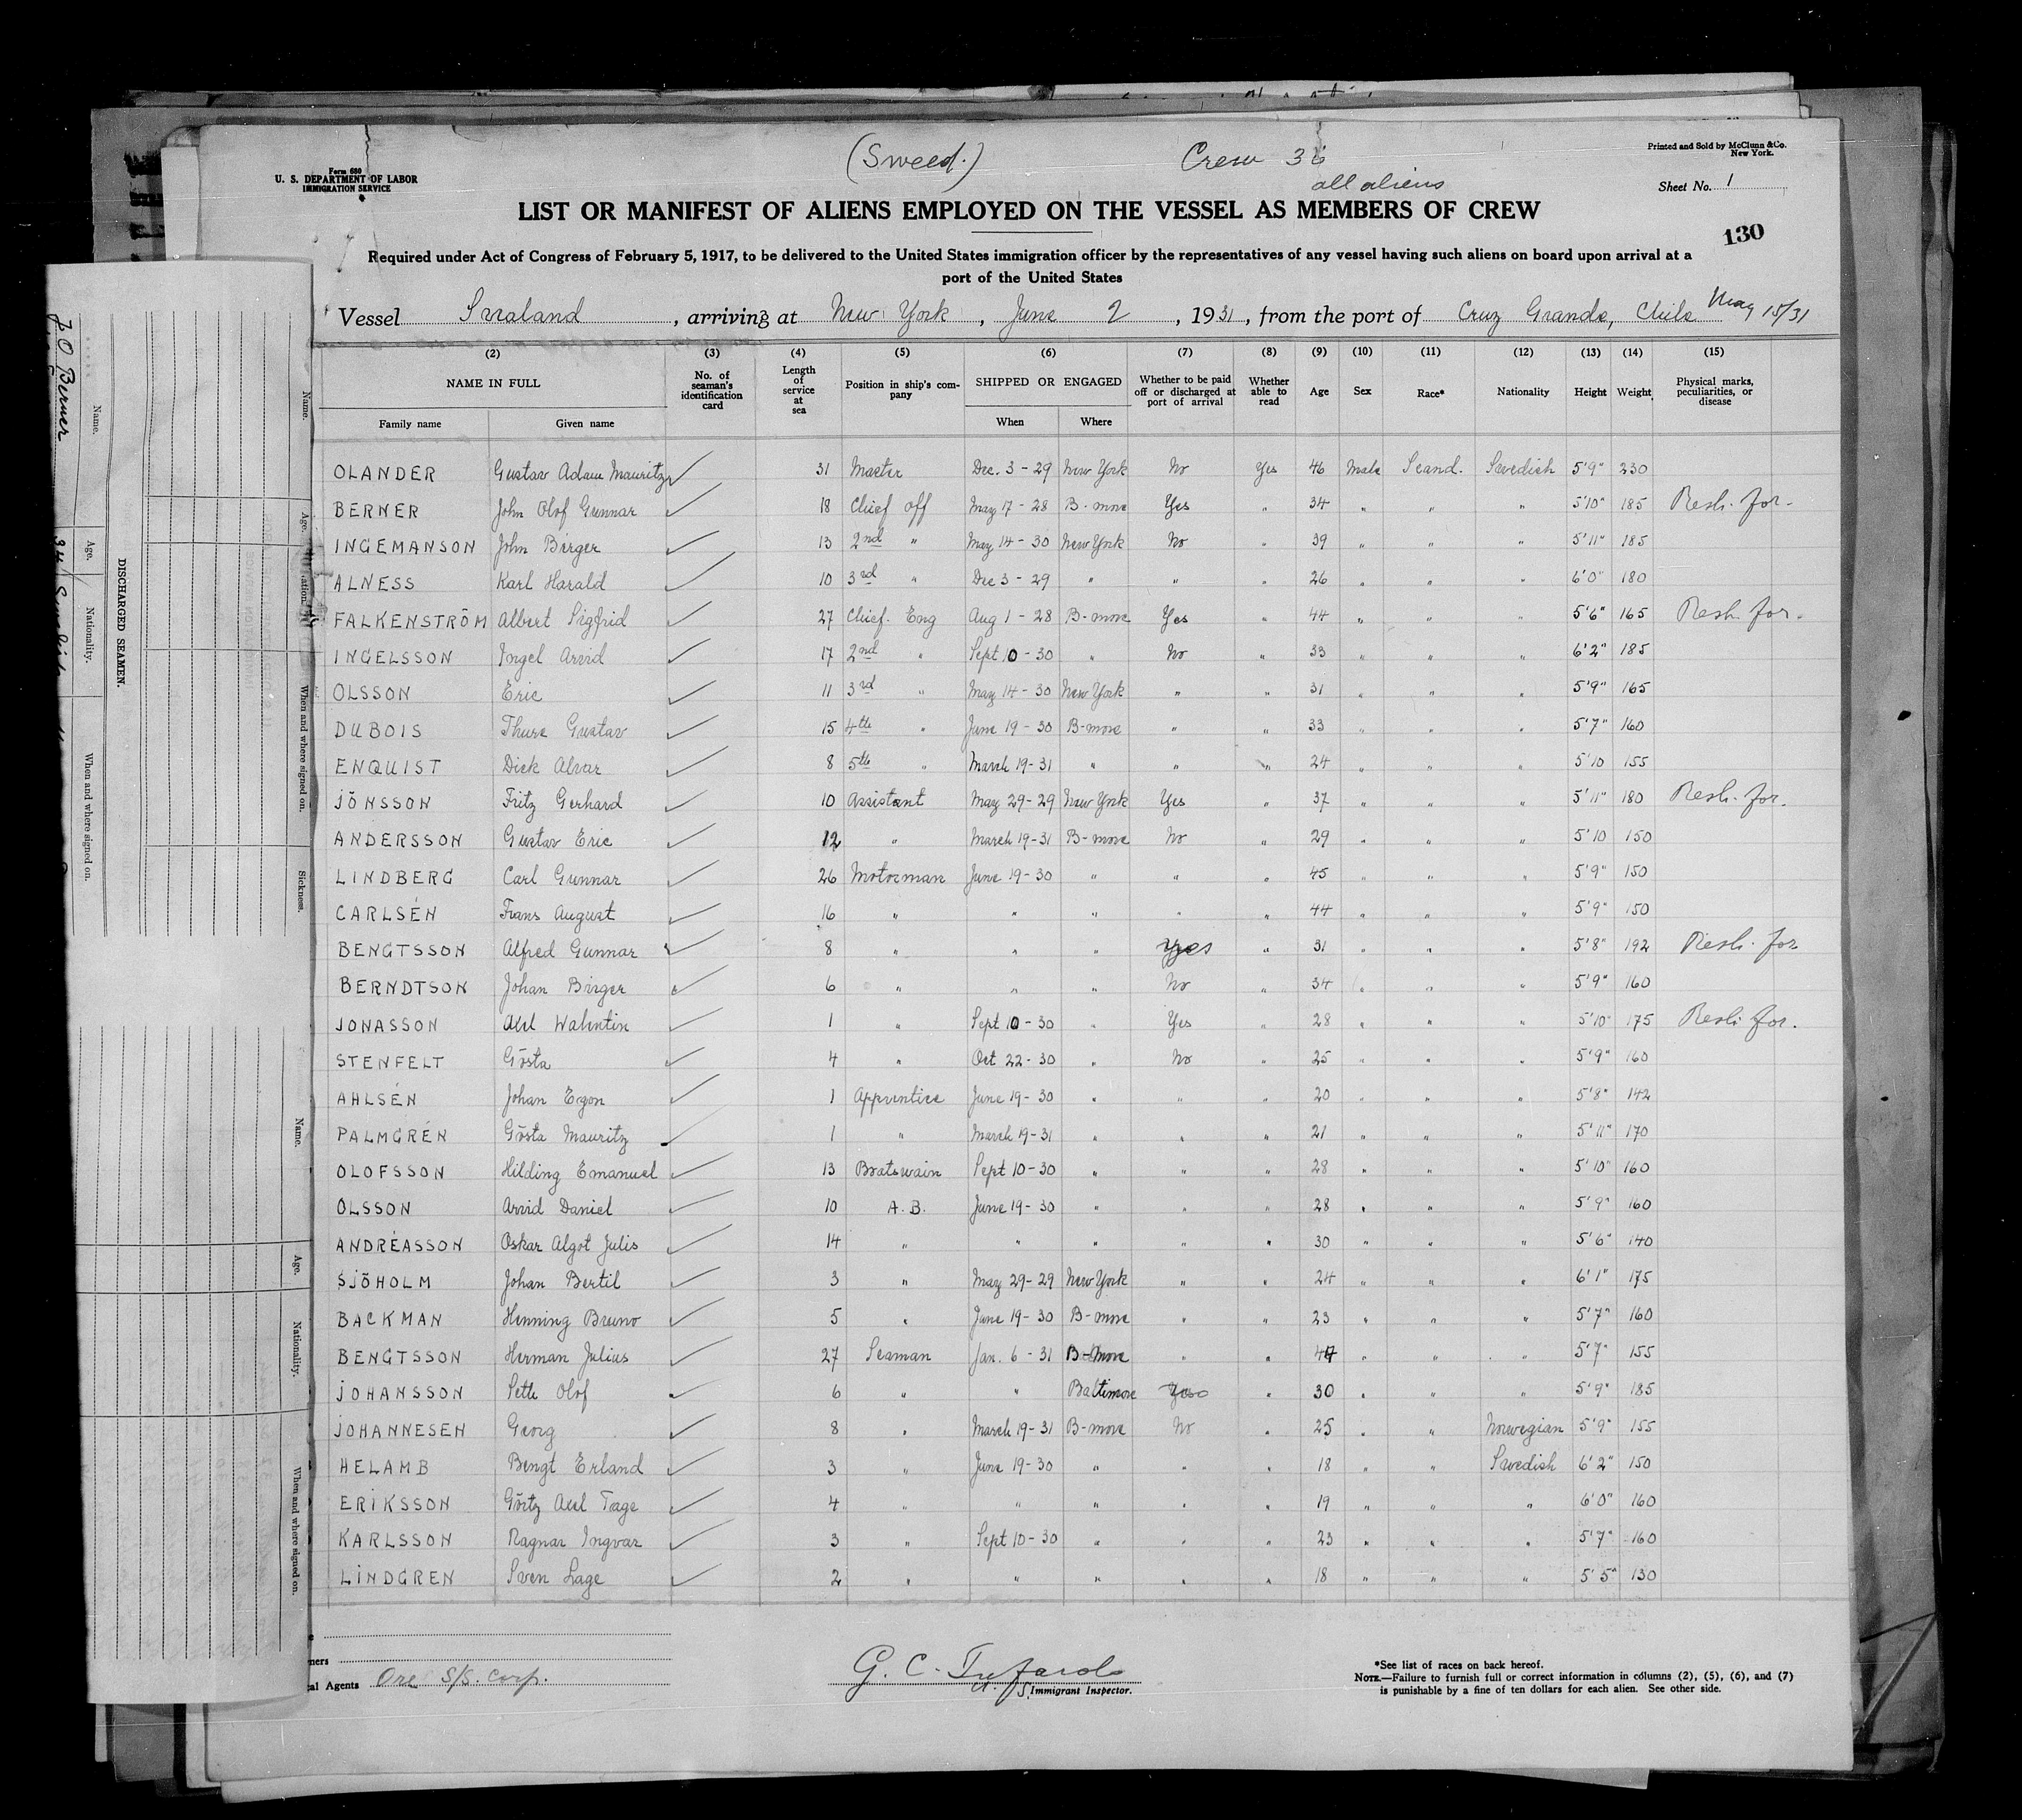 (Swed.) Crew 36
all aliens
Form 680
U. S. DEPARTMENT OF LABOR
IMMIGRATION SERVICE
Printed and Sold by McClunn & Co.
New York.
Sheet No. 1
LIST OR MANIFEST OF ALIENS EMPLOYED ON THE VESSEL AS MEMBERS OF CREW
130
Required under Act of Congress of February 5, 1917, to be delivered to the United States immigration officer by the representatives of any vessel having such aliens on board upon arrival at a
port of the United States
Vessel Svealand, arriving at New York, June 2, 1931, from the port of Cruz Grande, Chile May 15/31
(2) (3) (4) (5) (6) (7) (8) (9) (10) (11) (12) (13) (14) (15)
NAME IN FULL No. of seaman's identification card Length of service at sea Position in ship's company SHIPPED OR ENGAGED Whether to be paid off or discharged at port of arrival Whether able to read Age Sex Race* Nationality Height Weight Physical marks, peculiarities, or disease
Family name Given name When Where
OLANDER Gustav Adam Mauritz 31 Master Dec. 3 - 29 New York No Yes 46 Male Scand. Swedish 5'9" 230
BERNER John Olof Gunnar 18 Chief off May 17 - 28 B-more Yes " 34 " " " 5'10" 185 Resh. for.
INGEMANSON John Birger 13 2nd " May 14 - 30 New York No " 39 " " " 5'11" 185
ALNESS Karl Harald 10 3rd " Dec 3 - 29 " " " 26 " " " 6'0" 180
FALKENSTRÖM Albert Sigfrid 27 Chief. Eng Aug 1 - 28 B-more Yes " 44 " " " 5'6" 165 Resh. for.
INGELSSON Ingel Arvid 17 2nd " Sept 10 - 30 " No " 33 " " " 6'2" 185
OLSSON Eric 11 3rd " May 14 - 30 New York " " 31 " " " 5'9" 165
DUBOIS Thure Gustav 15 4th " June 19 - 30 B-more " " 33 " " " 5'7" 160
ENQUIST Dick Alvar 8 5th " March 19-31 " " " 24 " " " 5'10 155
JÖNSSON Fritz Gerhard 10 Assistant May 29-29 New York Yes " 37 " " " 5'11" 180 Resh. for.
ANDERSSON Gustav Eric 12 " March 19-31 B-more No " 29 " " " 5'10 150
LINDBERG Carl Gunnar 26 Motorman June 19-30 " " " 45 " " " 5'9" 150
CARLSÉN Frans August 16 " " " " " 44 " " " 5'9" 150
BENGTSSON Alfred Gunnar 8 " " " Yes " 31 " " " 5'8" 192 Resh. for
BERNDTSON Johan Birger 6 " " " No " 34 " " " 5'9" 160
JONASSON Axel Walentin 1 " Sept 10-30 " Yes " 28 " " " 5'10" 175 Resh. for.
STENFELT Gösta 4 " Oct 22-30 " No " 25 " " " 5'9" 160
AHLSÉN Johan Egon 1 Apprentice June 19-30 " " " 20 " " " 5'8" 142
PALMGRÉN Gösta Mauritz 1 " March 19-31 " " " 21 " " " 5'11" 170
OLOFSSON Hilding Emanuel 13 Boatswain Sept 10-30 " " " 28 " " " 5'10" 160
OLSSON Arvid Daniel 10 A.B. June 19-30 " " " 28 " " " 5'9" 160
ANDRÉASSON Oskar Algot Julis 14 " " " " " 30 " " " 5'6" 140
SJÖHOLM Johan Bertil 3 " May 29-29 New York " " 24 " " " 6'1" 175
BACKMAN Henning Bruno 5 " June 19-30 B-more " " 23 " " " 5'7" 160
BENGTSSON Herman Julius 27 Seaman Jan. 6 - 31 B-More " " 47 " " " 5'7" 155
JOHANSSON Sette Olof 6 " " Baltimore " 30 " " " 5'9" 185
JOHANNESEN Georg 8 " March 19-31 B-more No " 25 " " Norwegian 5'9" 155
HELAMB Bengt Erland 3 " June 19-30 " " " 18 " " Swedish 6'2" 150
ERIKSSON Götz Axel Tage 4 " " " " " 19 " " " 6'0" 160
KARLSSON Ragnar Ingvar 3 " Sept 10-30 " " " 23 " " " 5'7" 160
LINDGREN Sven Lage 2 " " " " " 18 " " " 5'5" 130
ners
al Agents Ore S/S. Corp.
G. C. Tufarolo
U. S. Immigrant Inspector.
*See list of races on back hereof.
NOTE.—Failure to furnish full or correct information in columns (2), (5), (6), and (7)
is punishable by a fine of ten dollars for each alien. See other side.
DISCHARGED SEAMEN.
Name. Age. Nationality. When and where signed on.
J. O Berner 34 Swedish
Name. Age. When and where signed on. Sickness.
Name. Age. Nationality. When and where signed on.